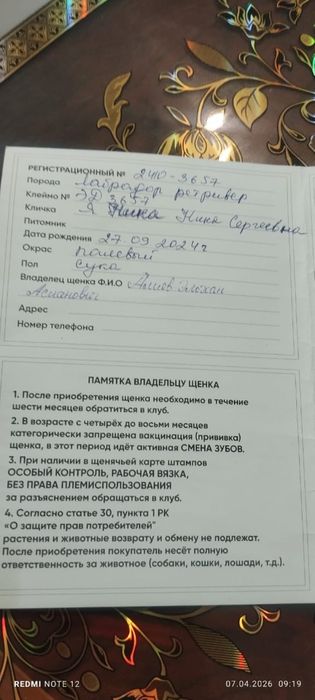 РЕГИСТРАЦИОННЫЙ № 2410-3657
Порода Лабрадор ретривер
Клеймо № ЭД 3657
Кличка Ника Ника Сергеевна
Питомник
Дата рождения 27 09 2024г
Окрас палевый
Пол сука
Владелец щенка Ф.И.О
Аслановы
Адрес
Номер телефона
ПАМЯТКА ВЛАДЕЛЬЦУ ЩЕНКА
1. После приобретения щенка необходимо в течение
шести месяцев обратиться в клуб.
2. В возрасте с четырёх до восьми месяцев
категорически запрещена вакцинация (прививка)
щенка, в этот период идёт активная СМЕНА ЗУБОВ.
3. При наличии в щенячьей карте штампов
ОСОБЫЙ КОНТРОЛЬ, РАБОЧАЯ ВЯЗКА,
БЕЗ ПРАВА ПЛЕМИСПОЛЬЗОВАНИЯ
за разъяснением обращаться в клуб.
4. Согласно статье 30, пункта 1 РК
«О защите прав потребителей"
растения и животные возврату и обмену не подлежат.
После приобретения покупатель несёт полную
ответственность за животное (собаки, кошки, лошади, т.д.).
REDMI NOTE 12
07.04.2026 09:19